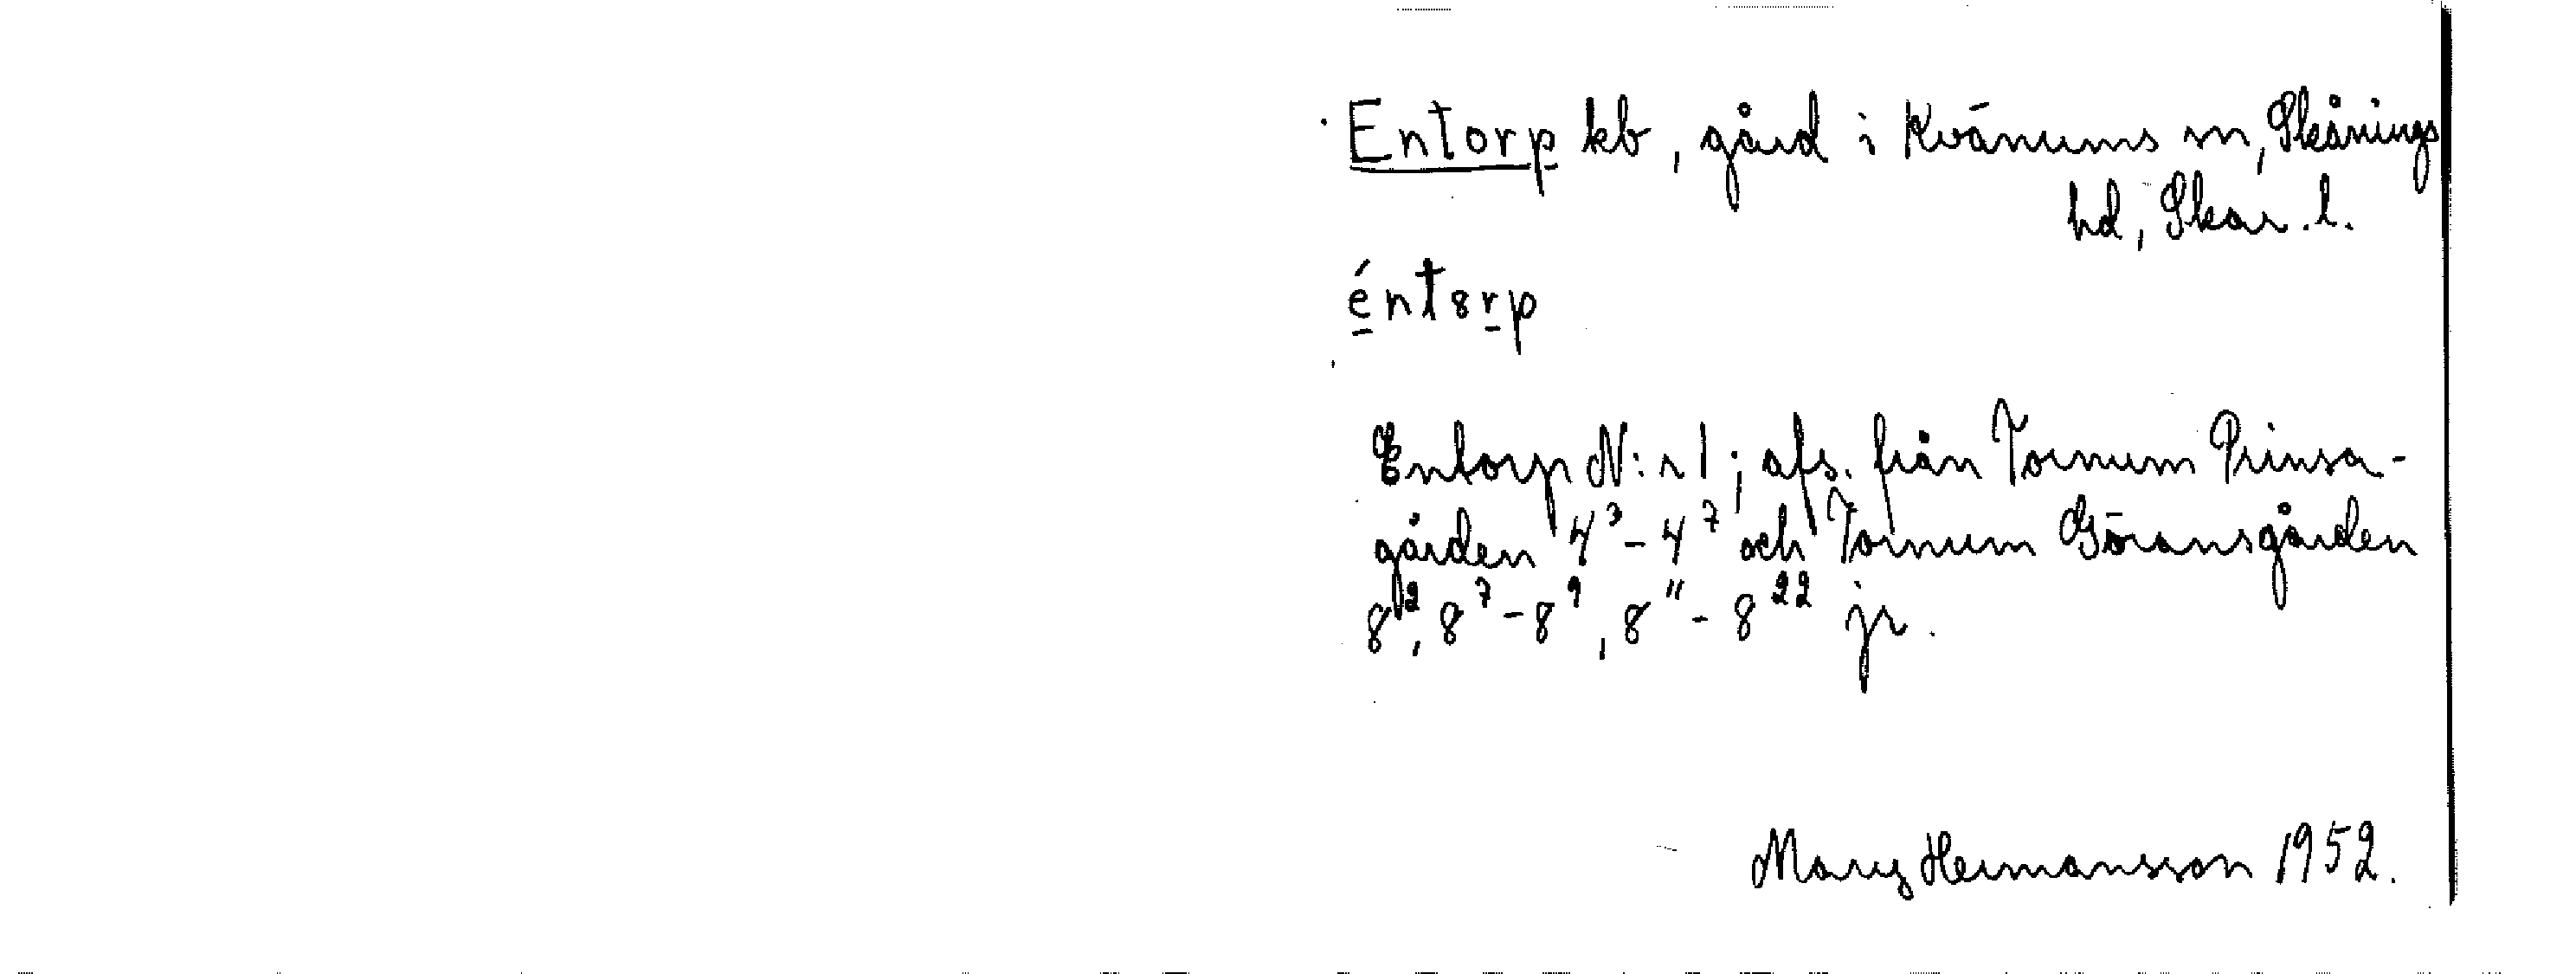 Entorp kb, gård i Kvänums sn, Skånings
hd, Skar. l.
éntȣrp
Entorp N:r 1; afs. från Tornum Prinsa-
gården 4³-4⁷ och Tornum Göransgården
8², 8⁷-8⁹, 8¹¹-8²² jr.
Mary Hermansson 1952.